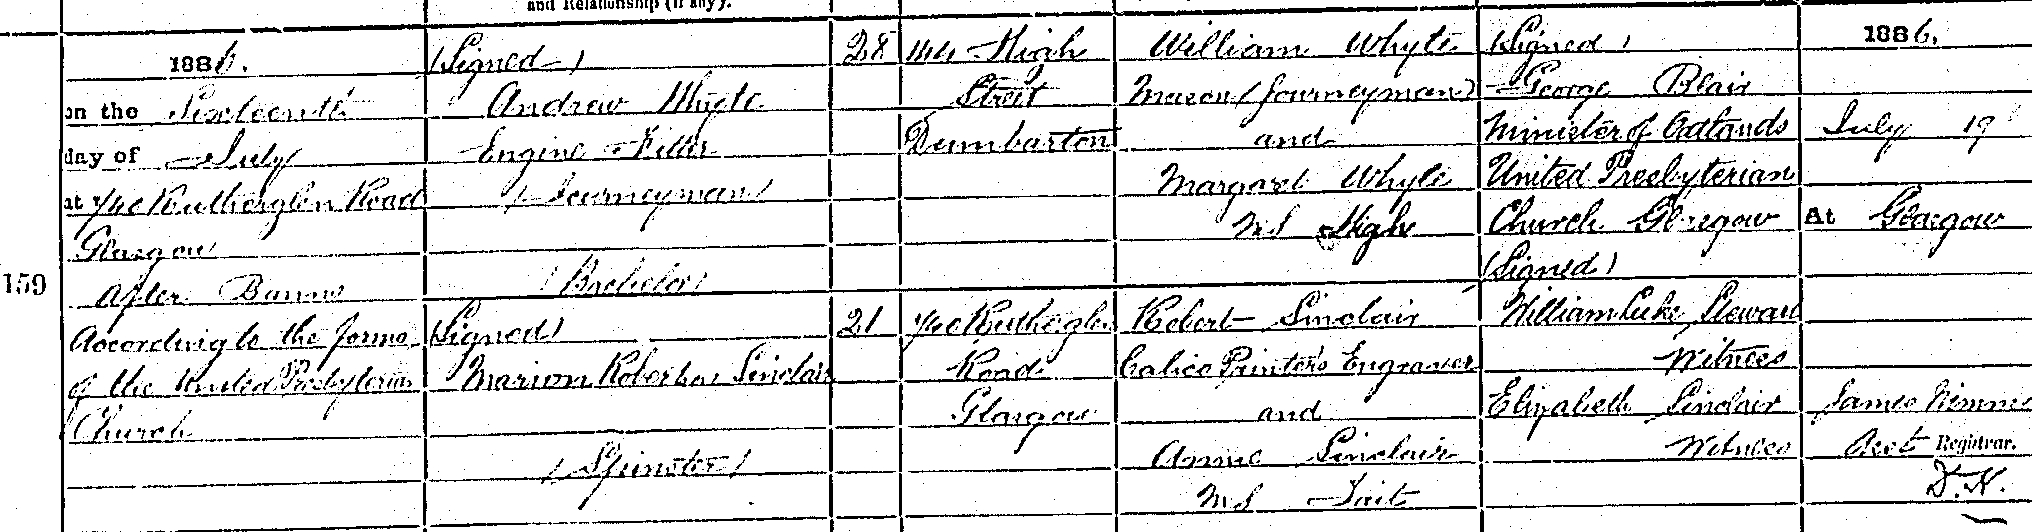 and Relationship (if any).
1886.
on the Sixteenth
day of July
at 740 Rutherglen Road
Glasgow
After Banns
According to the forms
of the United Presbyterian
Church
159
(Signed)
Andrew Whyte
Engine Fitter
(Journeyman)
(Bachelor)
(Signed)
Marion Robertson Sinclair
(Spinster)
28
21
144 High
Street
Dumbarton
740 Rutherglen
Road
Glasgow
William Whyte
Mason (Journeyman)
and
Margaret Whyte
MS High
Robert Sinclair
Calico Printer's Engraver
and
Annie Sinclair
MS Tait
(Signed)
George Blair
Minister of Oatlands
United Presbyterian
Church Glasgow
(Signed)
William Luke Stewart
Witness
Elizabeth Sinclair
Witness
1886,
July 19
At Glasgow
James Nimmo
Asst Registrar.